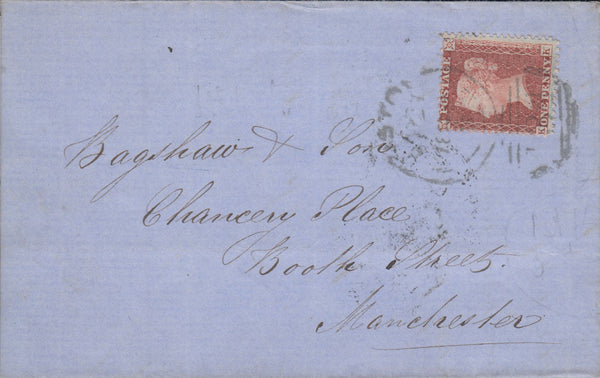 POSTAGE
ONE PENNY
Bagshaw & Son
Chancery Place
Booth Street.
Manchester